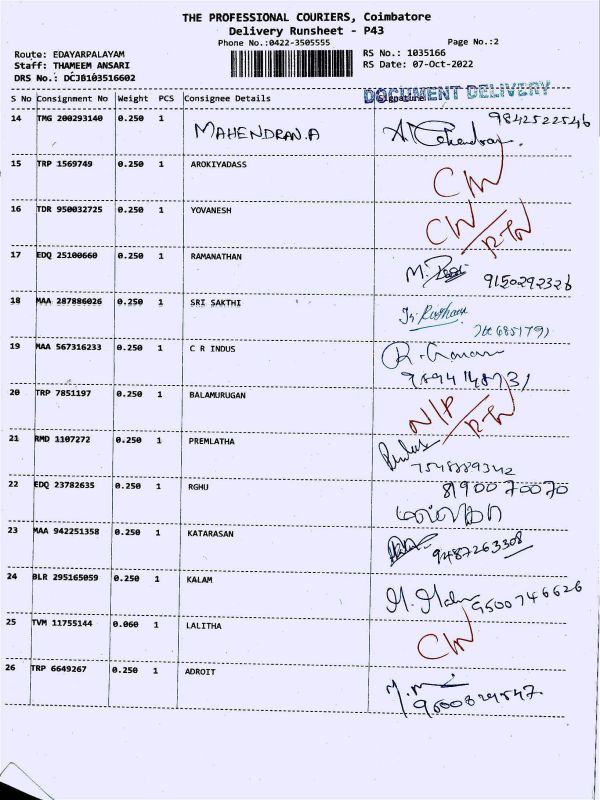 THE PROFESSIONAL COURIERS, Coimbatore
Delivery Runsheet - P43
Phone No.:0422-3505555 Page No.:2
Route: EDAYARPALAYAM RS No.: 1035166
Staff: THAMEEM ANSARI RS Date: 07-Oct-2022
DRS No.: DCJB103516602
S No Consignment No Weight PCS Consignee Details DOCUMENT DELIVERY
14 TMG 200293140 0.250 1 MAHENDRAN.A 9842522546
15 TRP 1569749 0.250 1 AROKIYADASS
16 TDR 950032725 0.250 1 YOVANESH
17 EDQ 25100660 0.250 1 RAMANATHAN 9150292326
18 MAA 287886026 0.250 1 SRI SAKTHI
19 MAA 567316233 0.250 1 C R INDUS
20 TRP 7851197 0.250 1 BALAMURUGAN N/P
21 RMD 1107272 0.250 1 PREMLATHA
22 EDQ 23782635 0.250 1 RGHU 8190070070
23 MAA 942251358 0.250 1 KATARASAN 9487263308
24 BLR 295165059 0.250 1 KALAM 9500746626
25 TVM 11755144 0.060 1 LALITHA
26 TRP 6649267 0.250 1 ADROIT